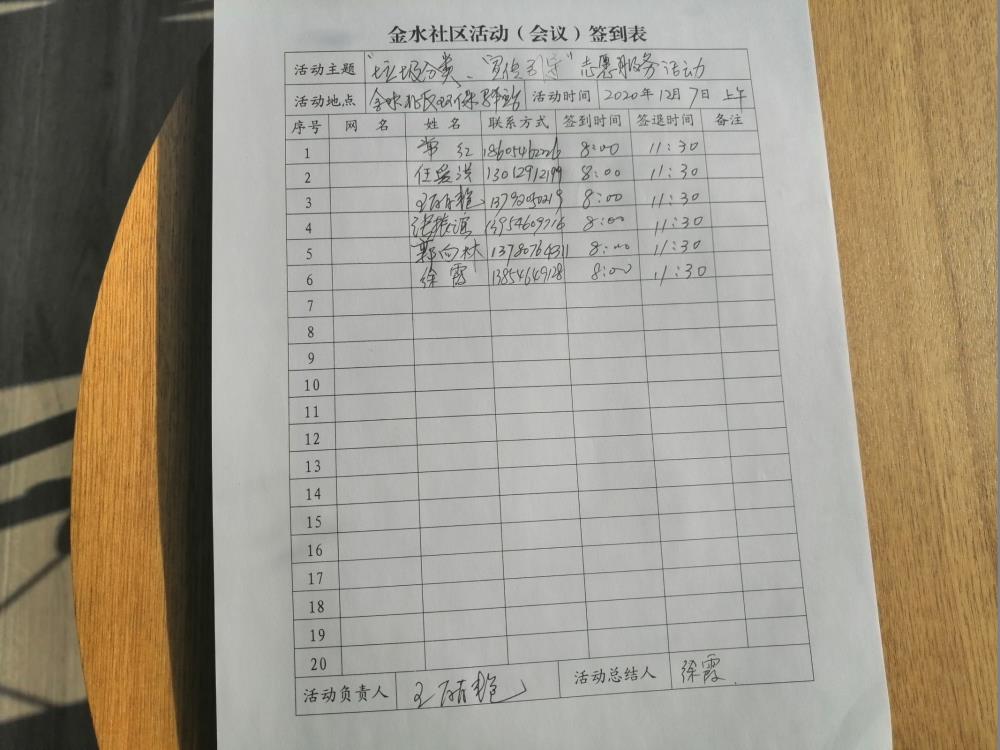 金水社区活动（会议）签到表
活动主题 "垃圾分类、宣传引导"志愿服务活动
活动地点 金水社区环保驿站 活动时间 2020年12月7日 上午
序号 网 名 姓 名 联系方式 签到时间 签退时间 备注
1 红 8:00 11:30
2 任爱洪 13012912199 8:00 11:30
3 8:00 11:30
4 张振滨 13954609716 8:00 11:30
5 郭向林 13780764311 8:00 11:30
6 徐霞 8:00 11:30
7
8
9
10
11
12
13
14
15
16
17
18
19
20
活动负责人 王 活动总结人 徐霞